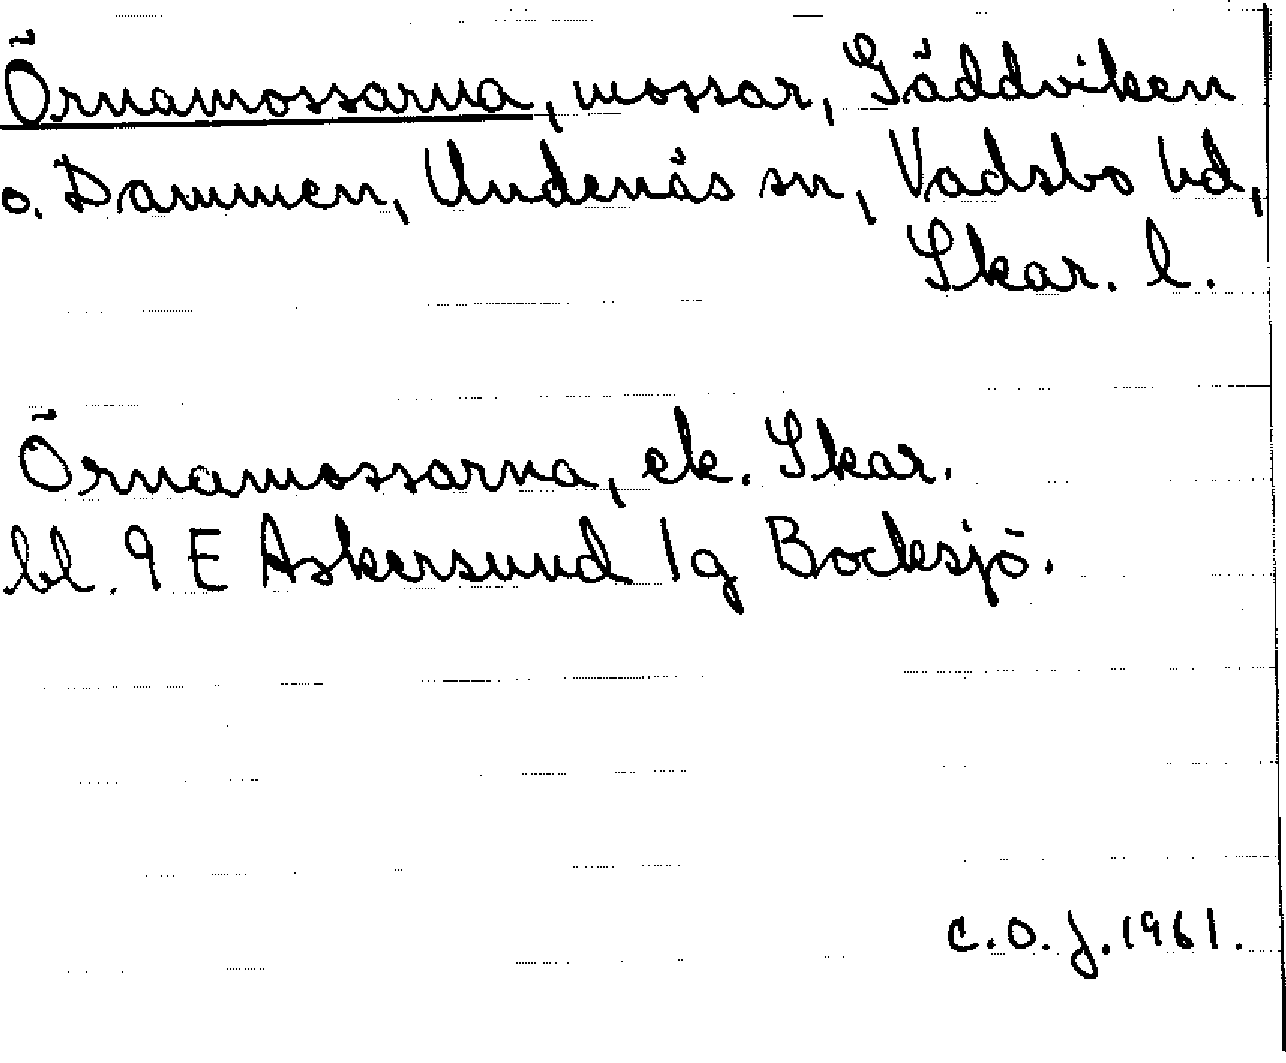 Örnamossarna, mossar, Gäddviken
o. Dammen, Undenäs sn, Vadsbo hd,
Skar. l.
Örnamossarna, ek. Skar.
bl. 9 E Askersund 1g Bocksjö.
C.O.J. 1961.